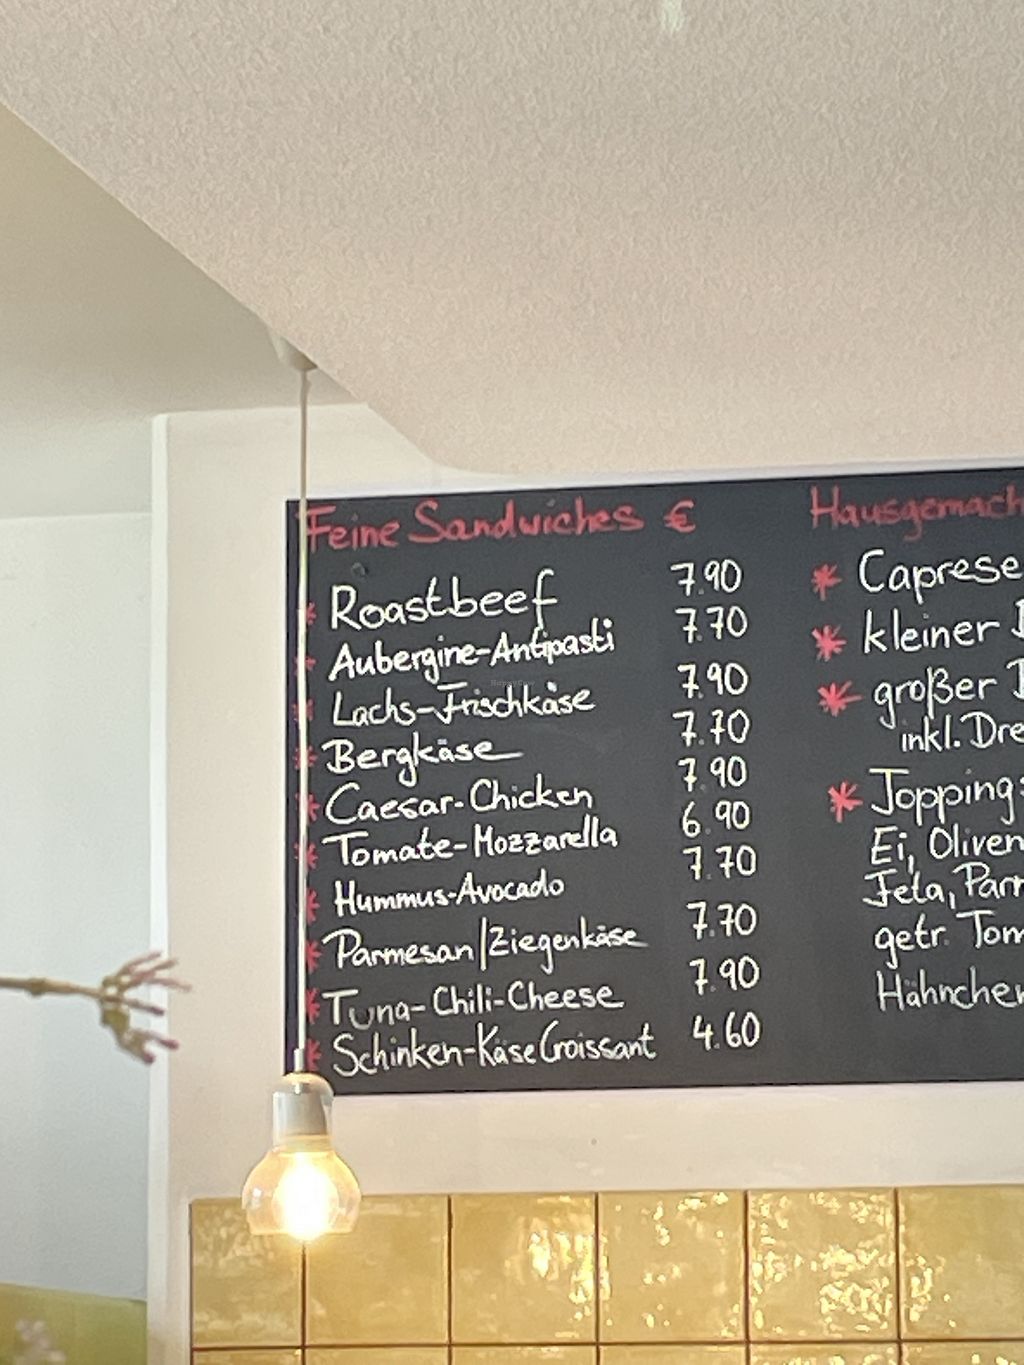 Feine Sandwiches €
Roastbeef 7.90
Aubergine-Antipasti 7.70
Lachs-Frischkäse 7.90
Bergkäse 7.70
Caesar-Chicken 7.90
Tomate-Mozzarella 6.90
Hummus-Avocado 7.70
Parmesan/Ziegenkäse 7.70
Tuna-Chili-Cheese 7.90
Schinken-Käse Croissant 4.60
Hausgemach
Caprese
kleiner
großer
inkl. Dre
Topping:
Ei, Oliven
Feta, Parm
getr. Tom
Hähnchen